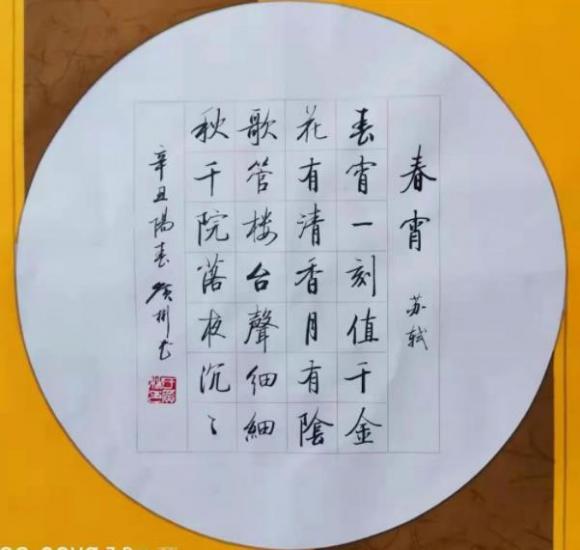 春宵 苏轼
春宵一刻值千金
花有清香月有陰
歌管楼台聲细細
秋千院落夜沉〻
辛丑阳春 广彬书